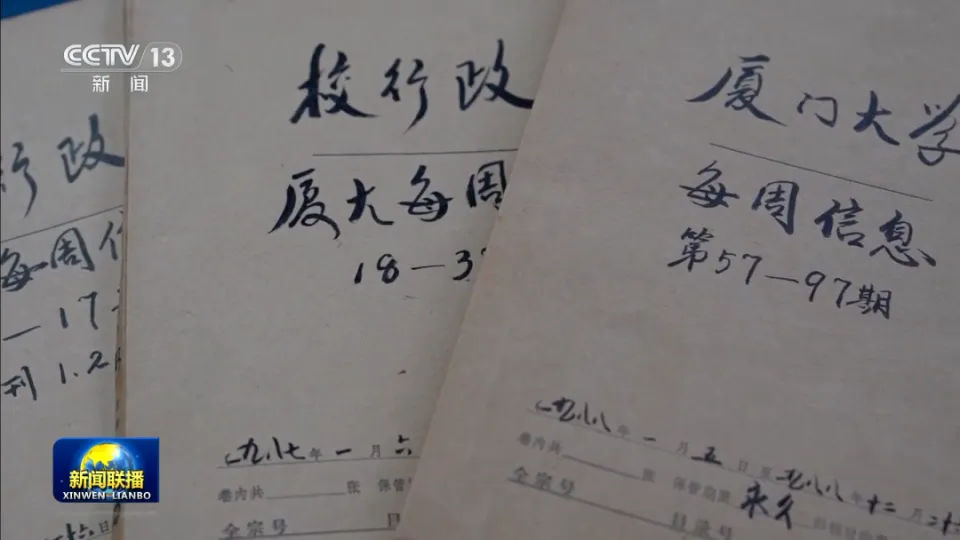 CCTV 13
新闻
行政
每周信
—17
刊1.2
十六日
校行政
厦大每周
18—3
一九八七年一月六
卷内共 张 保管
全宗号 目
厦门大学
每周信息
第57—97期
一九八八年一月五日至一九八八年十二月二十
卷内共 张 保管期限 永久
全宗号 目录号
新闻联播
XINWEN-LIANBO